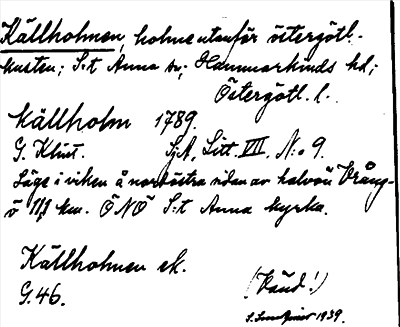 Källholmen, holme utanför östergötl.-
kusten; S:t Anna sn; Hammarkinds hd;
Östergötl. l.
Källholm 1789.
G. Klint. SjA, Litt. VII, N:o 9.
Läge i viken å nordöstra sidan av halvön Vrång-
ö 11,1 km. ÖNÖ S:t Anna kyrka.
Källholmen ek.
G. 46. (Vänd!)
1939.